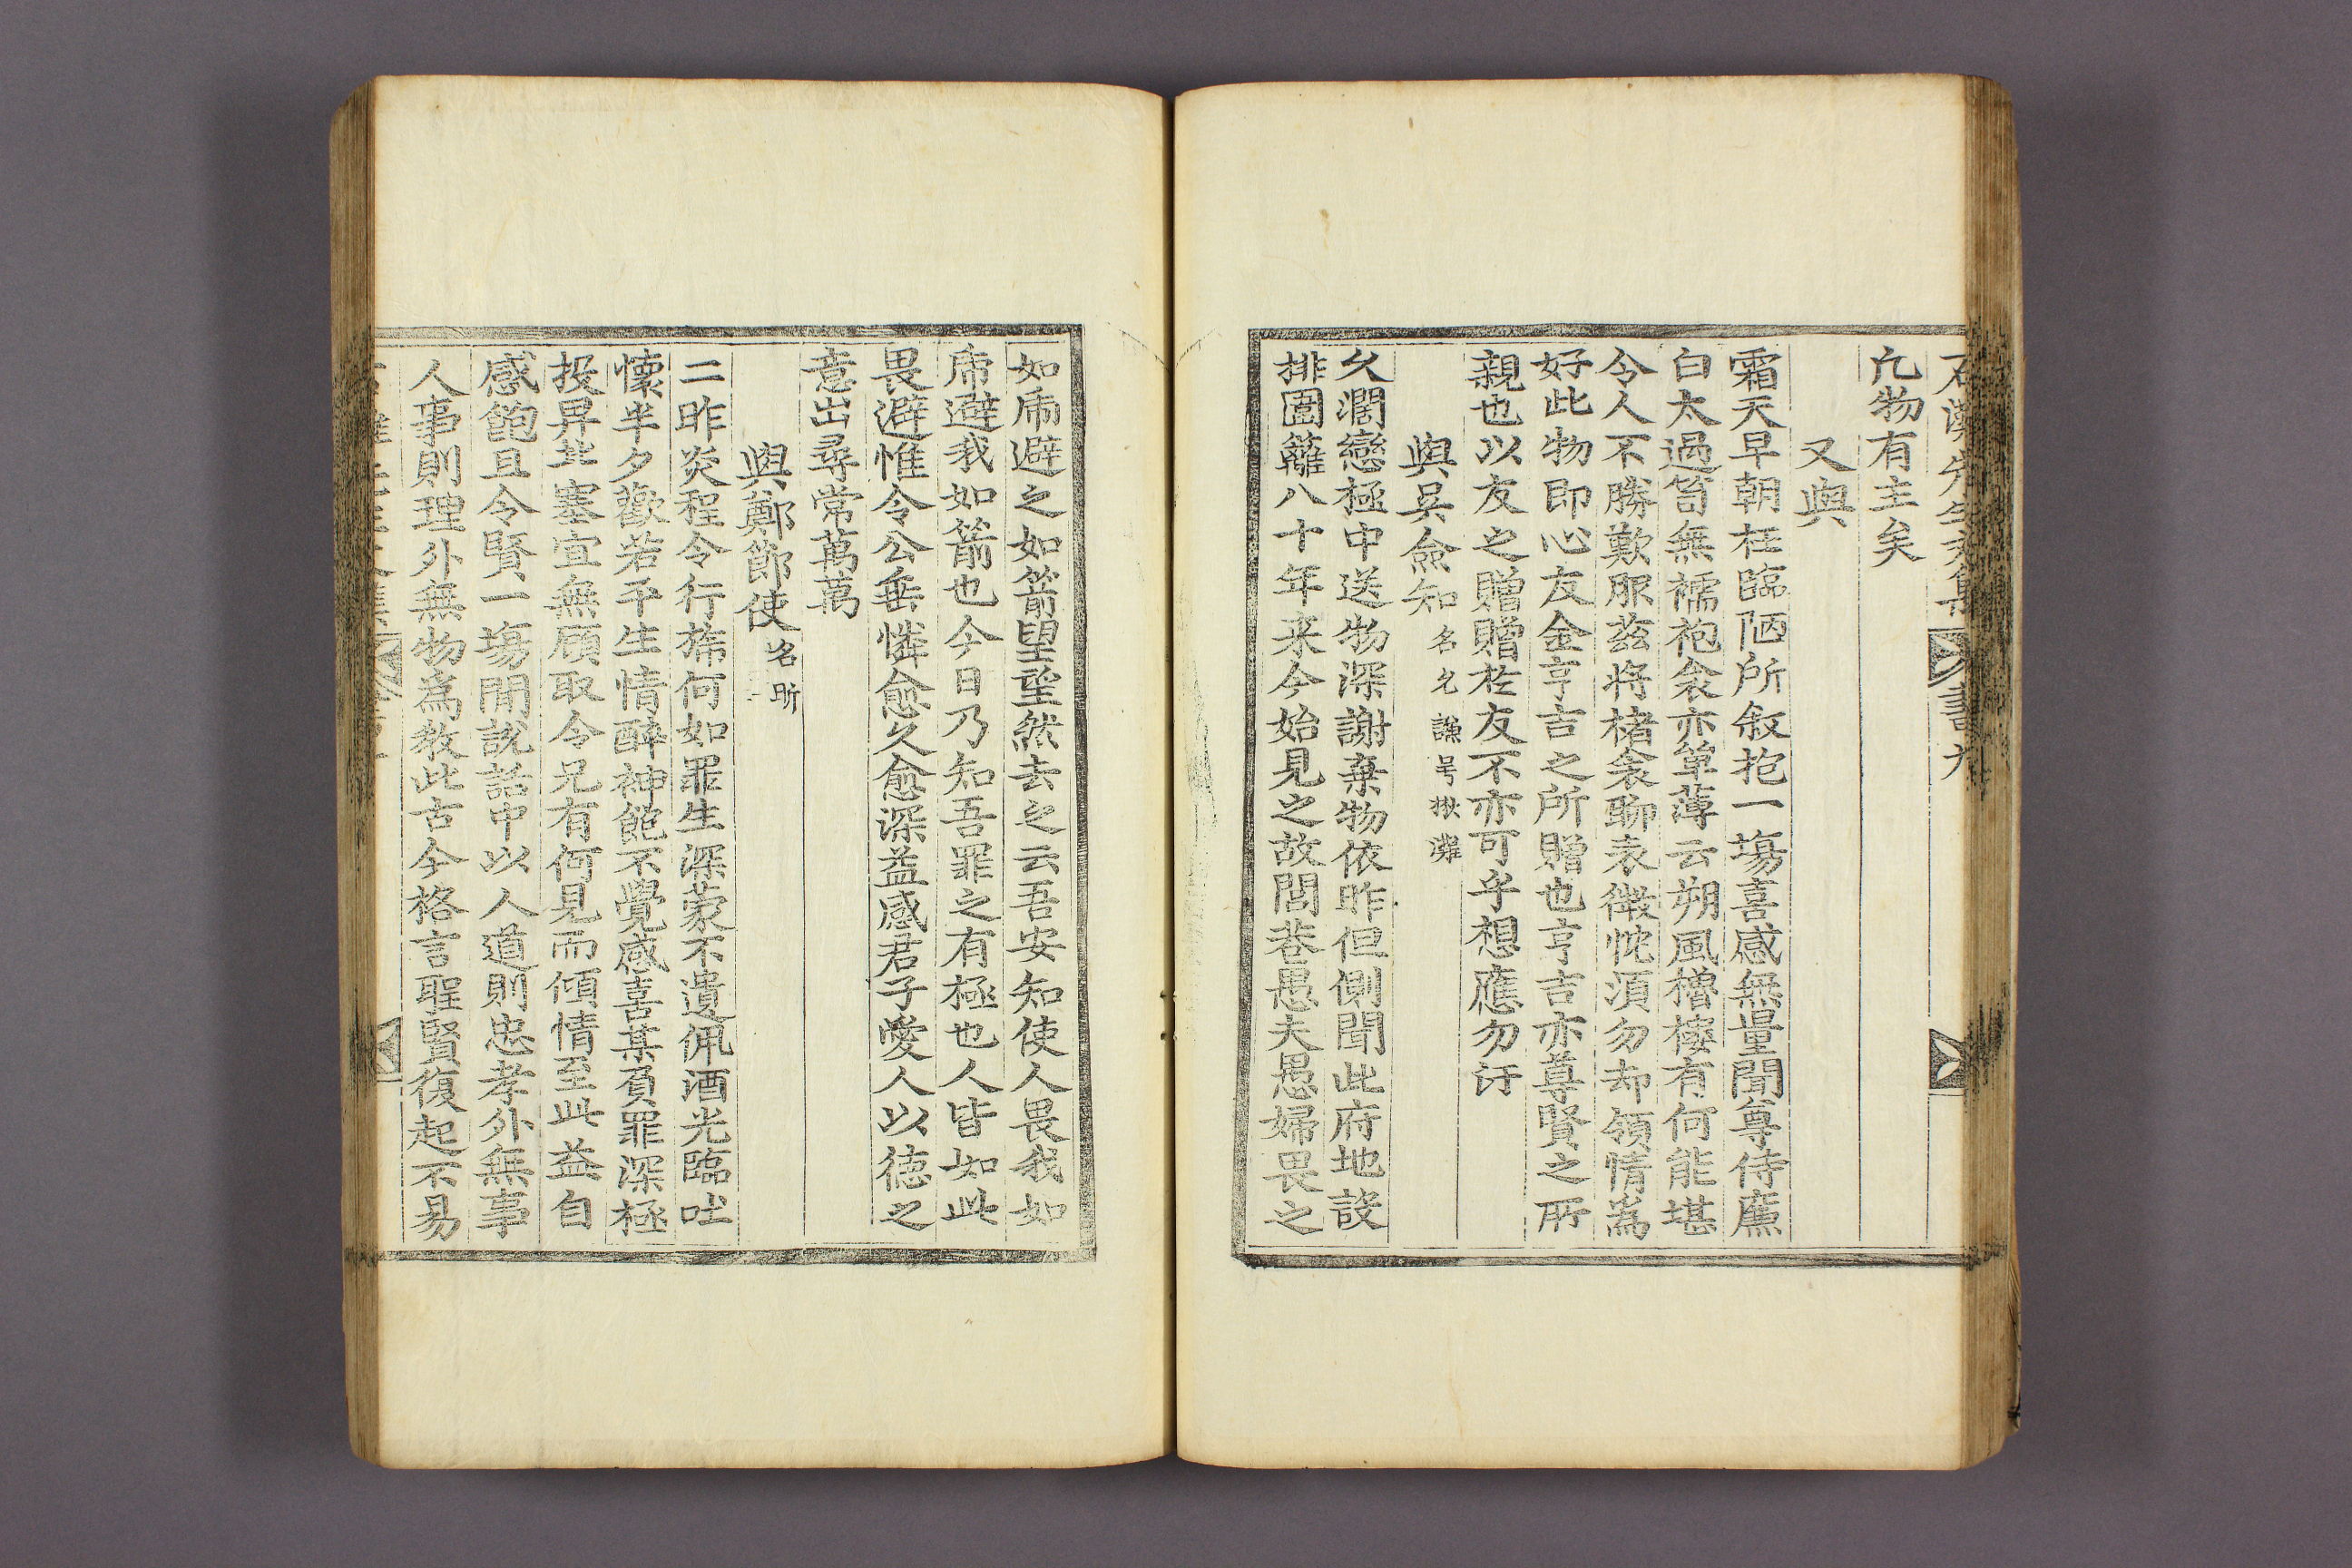 凢物有主矣
又與
霜天早朝枉臨陋所敍抱一塲喜感無量聞尊侍廌
白太過笥無襦袍衾亦單薄云朔風櫓樓有何能堪
令人不勝歎服玆將楮衾聊表微忱湏勿却領情爲
好此物即心友金亨吉之所贈也亨吉亦尊賢之所
親也以友之贈贈於友不亦可乎想應勿訝
與吳僉知 名允謙号楸灘
久濶戀極中送物深謝棄物依昨但側聞此府地設
排圍籬八十年来今始見之故閭巷愚夫愚婦畏之
如乕避之如箭望望然去之云吾安知使人畏我如
乕避我如箭也今日乃知吾罪之有極也人皆如此
畏避惟令公垂憐愈久愈深益感君子愛人以德之
意出尋常萬萬
與鄭節使 名昕
二昨炎程令行旆何如罪生深蒙不遺佩酒光臨吐
懷半夕歡若平生情醉神飽不覺感喜某負罪深極
投畀此塞宜無顧取令兄有何見而傾情至此益自
感飽且令賢一塲閒說話中以人道則忠孝外無事
人事則理外無物爲教此古今格言聖賢復起不易